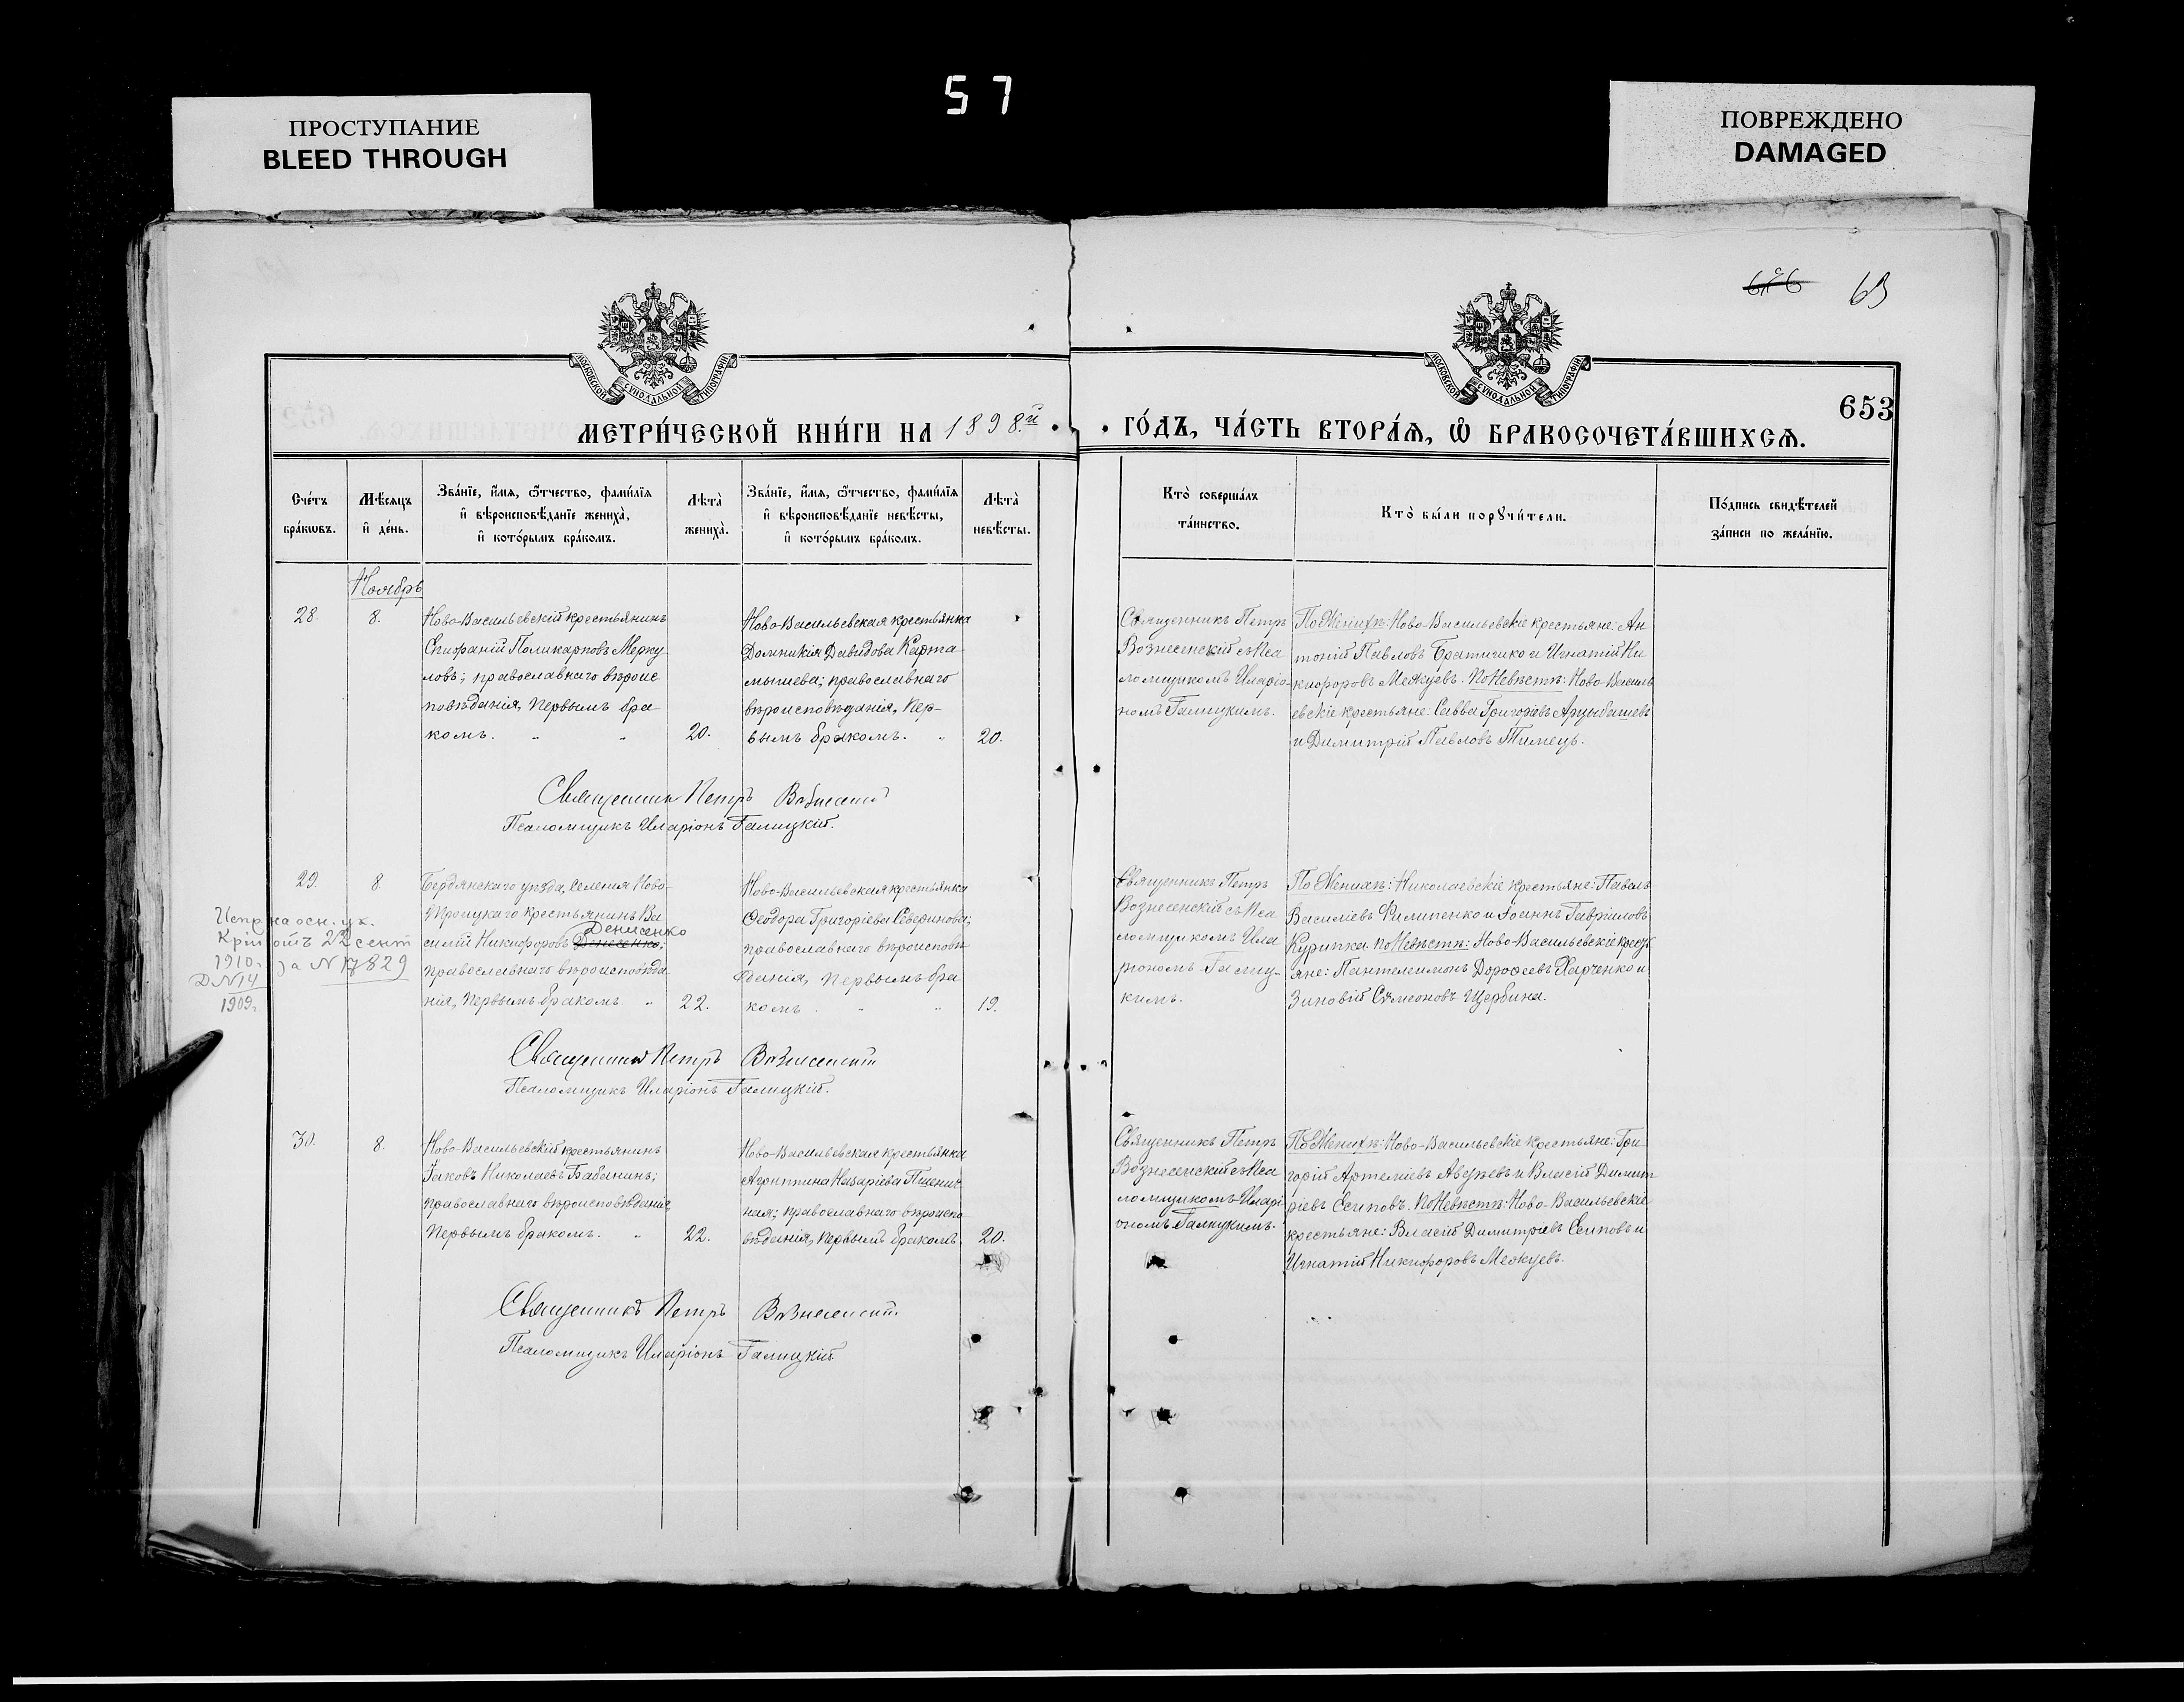 57
ПРОСТУПАНИЕ
BLEED THROUGH
ПОВРЕЖДЕНО
DAMAGED
63
653
МОСКОВСКОЙ СѴНОДАЛЬНОЙ ТИПОГРАФІИ
МОСКОВСКОЙ СѴНОДАЛЬНОЙ ТИПОГРАФІИ
МЕТРИ́ЧЕСКОЙ КНИ́ГИ НА 1898.й
ГО́ДЪ, ЧА́СТЬ ВТОРА́Ѧ, Ѽ БРАКОСОЧЕТА́ВШИХСѦ.
Сче́тъ
бра́кωвъ.
Мѣ́сяцъ
и҆ де́нь.
Зва́нїе, и҆́мѧ, ѻ҆́тчество, фами́лїѧ
и҆ вѣроисповѣ́данїе жениха̀,
и҆ кото́рымъ бра́комъ.
Лѣта̀
жениха̀.
Зва́нїе, и҆́мѧ, ѻ҆́тчество, фами́лїѧ
и҆ вѣроисповѣ́данїе невѣ́сты,
и҆ кото́рымъ бра́комъ.
Лѣта̀
невѣ́сты.
Кто̀ соверша́лъ
та́инство.
Кто̀ бы́ли порꙋчи́тели.
По́дпись свидѣ́телей
за́писи по жела́нїю.
Ноябрь
28.
8.
Ново-Васильевскій крестьянинъ
Епифаній Поликарповъ Мерку
ловъ; православнаго вѣроис
повѣданія, первымъ бра
комъ. „ „
20.
Ново-Васильевская крестьянка
Домникія Давидова Карта
мышева; православнаго
вѣроисповѣданія, пер-
вымъ бракомъ. „
20.
Священникъ Петръ
Вознесенскій съ Пса
ломщикомъ Иларіо-
номъ Галицкимъ.
По Женихѣ: Ново-Васильевскіе крестьяне: Ан
тоній Павловъ Братишко и Игнатій Ни
кифоровъ Межуевъ. По Невѣстѣ: Ново-Василь
евскіе крестьяне: Савва Григоріевъ Арцыбашевъ
и Димитрій Павловъ Тимецъ.
Священникъ Петръ Вознесенскій
Псаломщикъ Иларіонъ Галицкій.
29.
8.
Испр на осн. ук.
от 22 сент
1910г. за N 17829
Д N 14
1909г.
Бердянскаго уѣзда, селенія Ново-
Троицкаго крестьянинъ Ва
Денисенко
силій Никифоровъ Денесенко;
православнаго вѣроисповѣда
нія, первымъ бракомъ. „
22.
Ново-Васильевская крестьянка
Ѳеодора Григоріева Северинова;
православнаго вѣроисповѣ
данія, первымъ бра
комъ. „ „
19.
Священникъ Петръ
Вознесенскій съ Пса
ломщикомъ Ила
ріономъ Галиц-
кимъ.
По Женихѣ: Николаевскіе крестьяне: Павелъ
Василіевъ Филипенко и Іоаннъ Гавріиловъ
Курипка. По Невѣстѣ: Ново-Васильевскіе крестья
яне: Пантелеимонъ Дороѳеевъ Харченко и
Зиновій Симеоновъ Щербина.
Священникъ Петръ Вознесенскій
Псаломщикъ Иларіонъ Галицкій.
30.
8.
Ново-Васильевскій крестьянинъ
Іаковъ Николаевъ Бабанинъ;
православнаго вѣроисповѣданія,
первымъ бракомъ. „
22.
Ново-Васильевская крестьянка
Агриппина Назаріева Пшенич
ная; православнаго вѣроиспо
вѣданія, первымъ бракомъ.
20.
Священникъ Петръ
Вознесенскій съ Пса
ломщикомъ Иларі
ономъ Галицкимъ.
По Женихѣ: Ново-Васильевскіе крестьяне: Гри
горій Артеміевъ Авдѣевъ и Власій Димит
ріевъ Есиповъ. По Невѣстѣ: Ново-Васильевскіе
крестьяне: Власій Димитріевъ Есиповъ и
Игнатій Никифоровъ Межуевъ.
Священникъ Петръ Вознесенскій.
Псаломщикъ Иларіонъ Галицкій